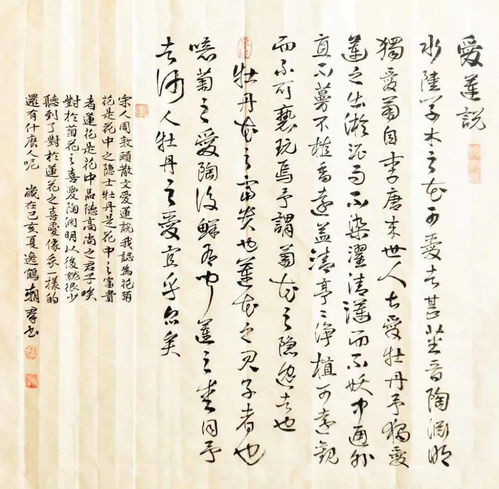 愛蓮說
水陸草木之花可愛者甚蕃晉陶淵明
獨愛菊自李唐來世人甚愛牡丹予獨愛
蓮之出淤泥而不染濯清漣而不妖中通外
直不蔓不枝香遠益清亭亭淨植可遠觀
而不可褻玩焉予謂菊花之隱逸者也
牡丹花之富貴也蓮花之君子者也
噫菊之愛陶後鮮有聞蓮之愛同予
者何人牡丹之愛宜乎眾矣
宋人周敦頤散文愛蓮說我認為花菊
花是花中之隱士牡丹是花中之富貴
者蓮花是花中品德高尚之君子唉
對於菊花之喜愛陶淵明以後就很少
聽到了對於蓮花之喜愛像我一樣的
還有什麼人呢 歲在己亥夏逸鶴